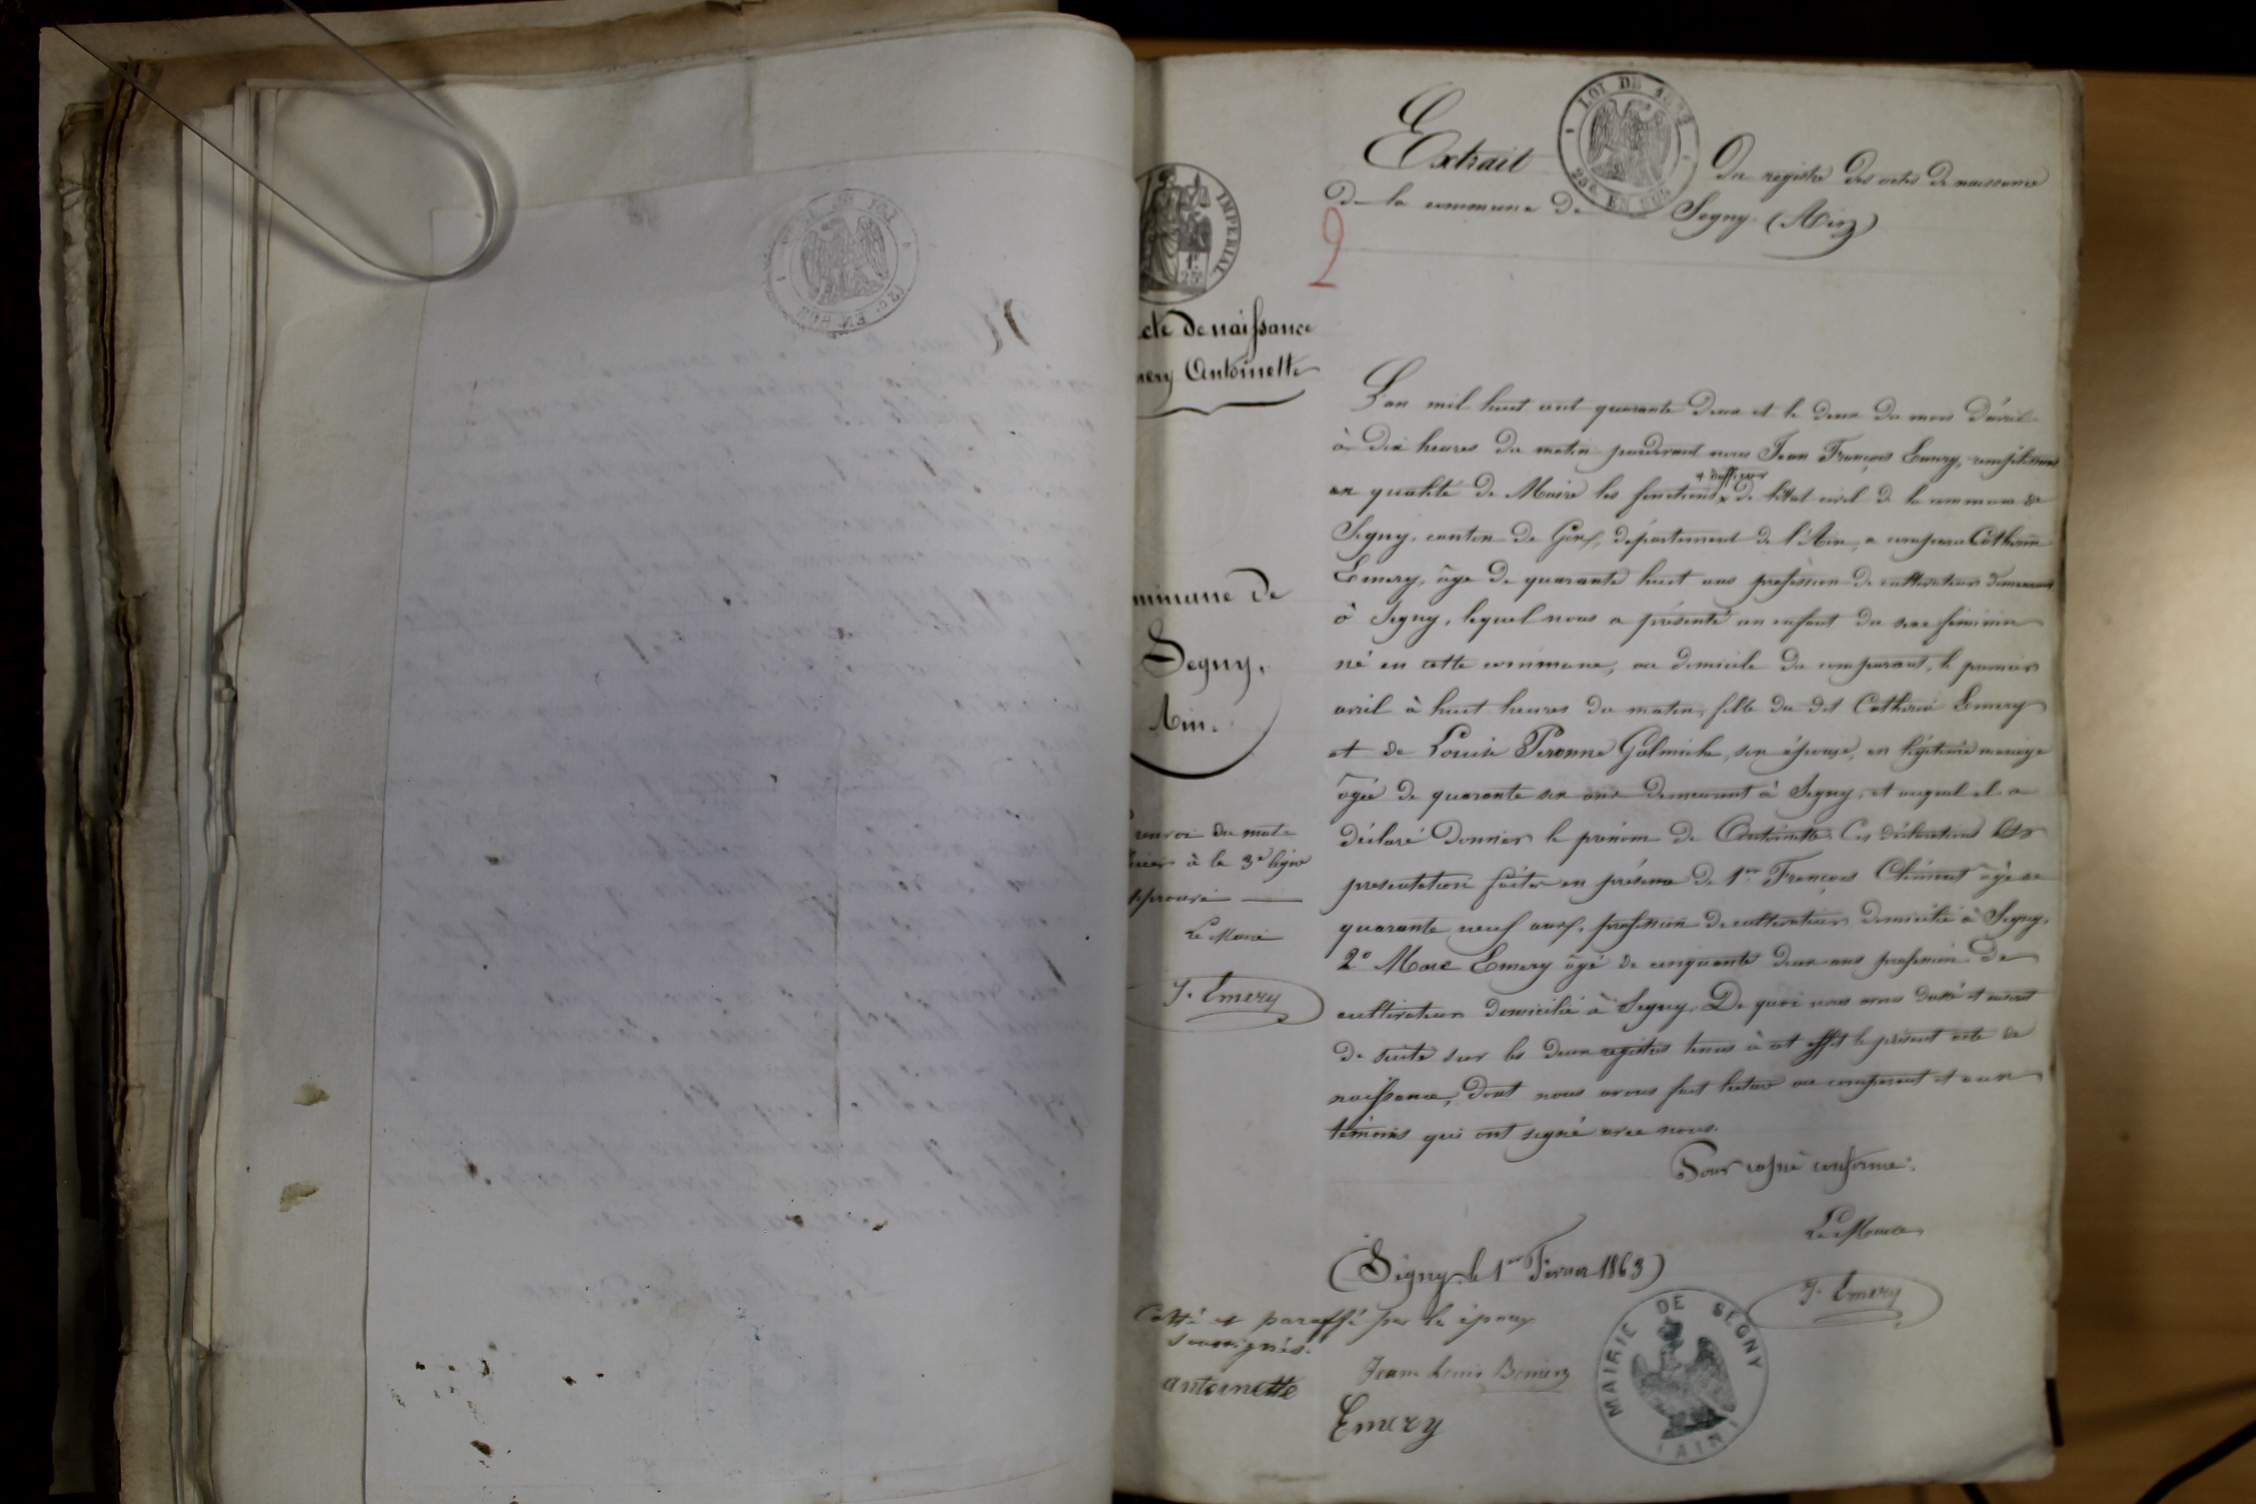 LOI DE
25c EN SUS
Extrait Du registre des actes de naissance
De la commune de Segny (Ain)
2
IMPERIAL
1f
25c
cte de naissance
mery Antoinette
L'an mil huit cent quarante deux et le deux du mois d'avril
à dix heures du matin pardevant nous Jean François Emery, remplissant
+ d'officier
en qualité de Maire les fonctions x de l'état civil de la commune de
Segny, canton de Gex, département de l'Ain, a comparu Catherin
Emery, âgé de quarante huit ans profession de cultivateur demeurant
à Segny, lequel nous a présenté un enfant du sexe féminin
né en cette commune, au domicile du comparant, le premier
avril à huit heures du matin, fille du dit Catherin Emery
et de Louise Peronne Golmiche, son épouse, en légitime mariage
âgée de quarante six ans demeurant à Segny, et auquel il a
déclaré donner le prénom de Antoinette. Ces déclarations et
presentation faites en présence de 1er François Clément âgé de
quarante neuf ans, profession de cultivateur domicilié à Segny.
2° Marc Emery âgé de cinquante deux ans profession de
cultivateur domicilié à Segny. De quoi nous avons dressé et
de suite sur les deux registres tenus à cet effet le présent acte de
naissance, dont nous avons fait lecture au comparant et aux
témoins qui ont signé avec nous.
Pour copie conforme:
Le Maire
J. Emery
(Segny le 1er Février 1863)
mmune de
Segny,
Ain.
renvoi du mot
à la 3e ligne
approuvé
Le Maire
J. Emery
Cotté et paraffé par les époux
soussignés.
antoinette Jean Louis
Emery
MAIRIE DE SEGNY
(AIN)